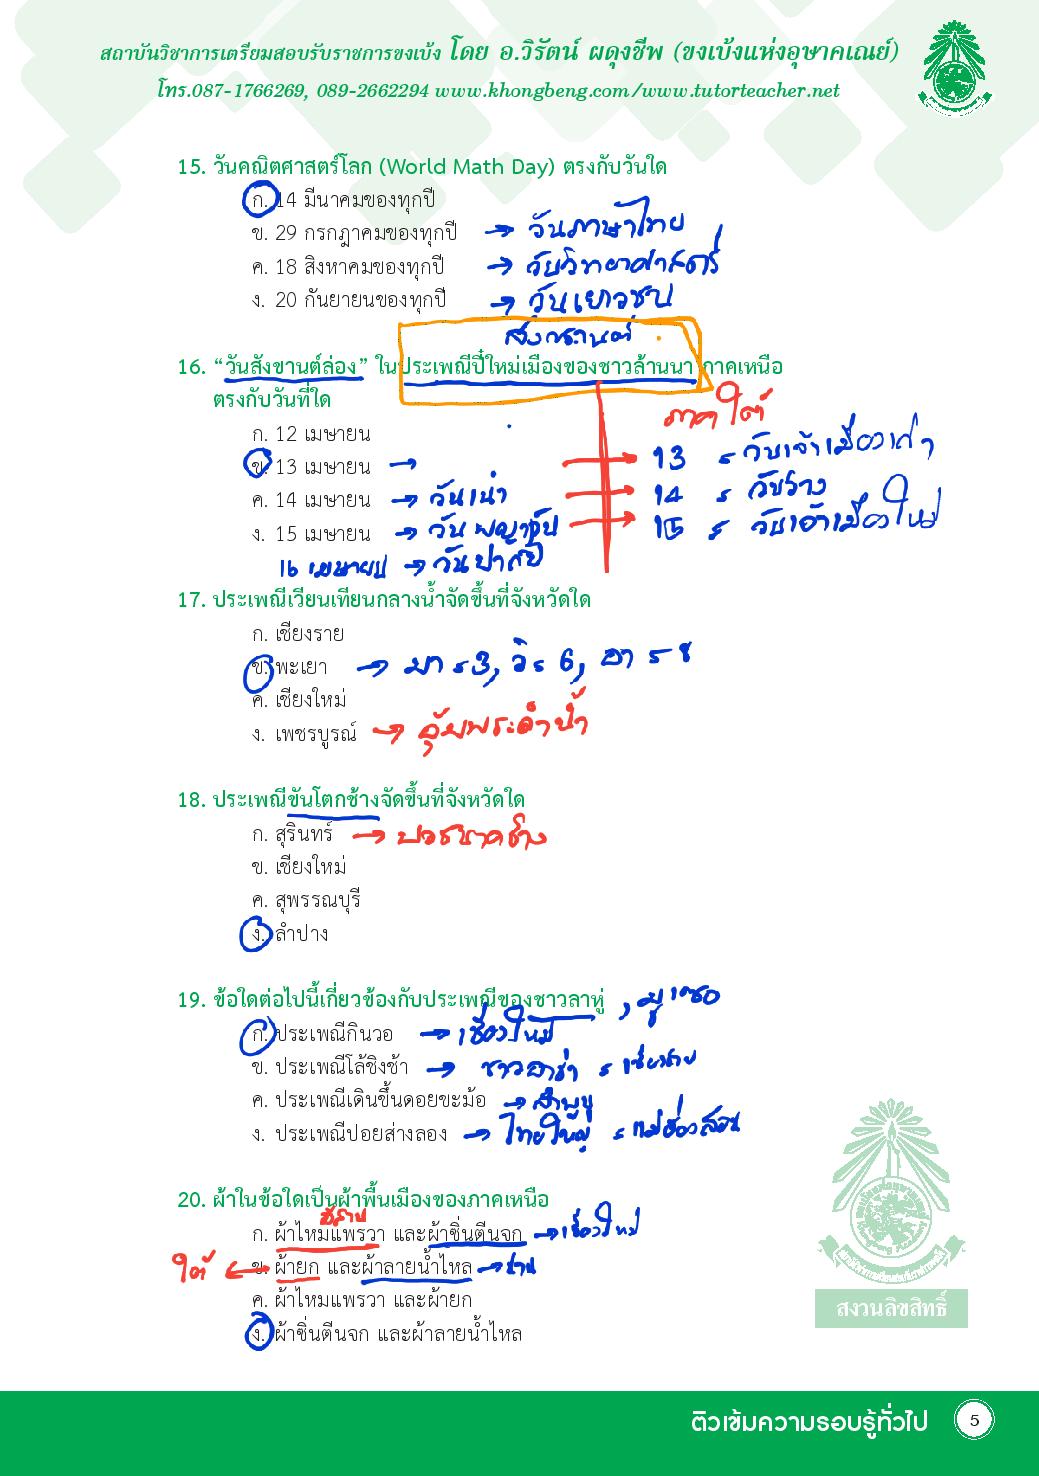 สถาบันวิชาการเตรียมสอบรับราชการขงเบ้ง โดย อ.วิรัตน์ ผดุงชีพ (ขงเบ้งแห่งอุษาคเณย์)
โทร.087-1766269, 089-2662294 www.khongbeng.com/www.tutorteacher.net
15. วันคณิตศาสตร์โลก (World Math Day) ตรงกับวันใด
ก. 14 มีนาคมของทุกปี
ข. 29 กรกฎาคมของทุกปี → วันภาษาไทย
ค. 18 สิงหาคมของทุกปี → วันวิทยาศาสตร์
ง. 20 กันยายนของทุกปี → วันเยาวชน
สงกรานต์
16. “วันสังขานต์ล่อง” ในประเพณีปี๋ใหม่เมืองของชาวล้านนา ภาคเหนือ
ตรงกับวันที่ใด
ภาคใต้
ก. 12 เมษายน
ข. 13 เมษายน → → 13 = วันเจ้าเมืองเก่า
ค. 14 เมษายน → วันเน่า → 14 = วันว่าง
ง. 15 เมษายน → วันพญาวัน → 15 = วันเจ้าเมืองใหม่
16 เมษายน → วันปากปี
17. ประเพณีเวียนเทียนกลางน้ำจัดขึ้นที่จังหวัดใด
ก. เชียงราย
ข. พะเยา → มา = 3, วิ = 6, อา = 8
ค. เชียงใหม่
ง. เพชรบูรณ์ → อุ้มพระดำน้ำ
18. ประเพณีขันโตกช้างจัดขึ้นที่จังหวัดใด
ก. สุรินทร์ → บวชนาคช้าง
ข. เชียงใหม่
ค. สุพรรณบุรี
ง. ลำปาง
19. ข้อใดต่อไปนี้เกี่ยวข้องกับประเพณีของชาวลาหู่ , มูเซอ
ก. ประเพณีกินวอ → เชียงใหม่
ข. ประเพณีโล้ชิงช้า → ชาวอาข่า = เชียงราย
ค. ประเพณีเดินขึ้นดอยขะม้อ → ลำพูน
ง. ประเพณีปอยส่างลอง → ไทยใหญ่ = แม่ฮ่องสอน
20. ผ้าในข้อใดเป็นผ้าพื้นเมืองของภาคเหนือ
อีสาน
ก. ผ้าไหมแพรวา และผ้าซิ่นตีนจก → เชียงใหม่
ใต้ ← ข. ผ้ายก และผ้าลายน้ำไหล → น่าน
ค. ผ้าไหมแพรวา และผ้ายก
ง. ผ้าซิ่นตีนจก และผ้าลายน้ำไหล
สงวนลิขสิทธิ์
ติวเข้มความรอบรู้ทั่วไป 5